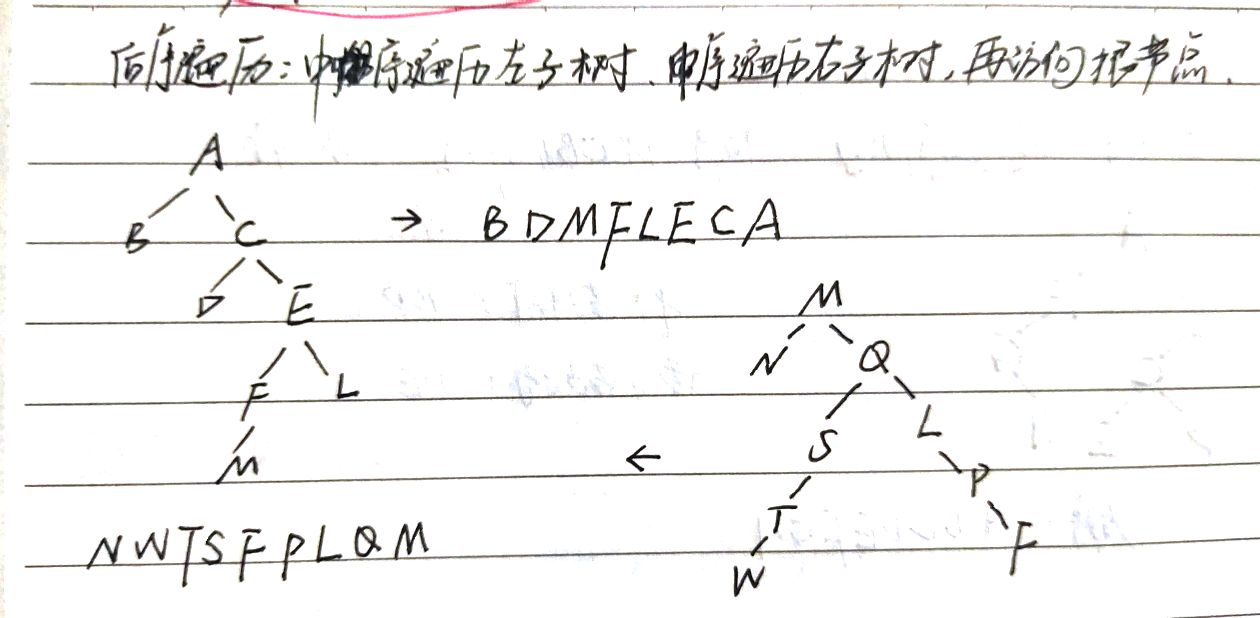 后序遍历:中序遍历左子树、中序遍历右子树,再访问根节点.
A
B C → B D M F L E C A
D E
M
N Q
F L
S L
M ← P
T F
N W T S F P L Q M
W